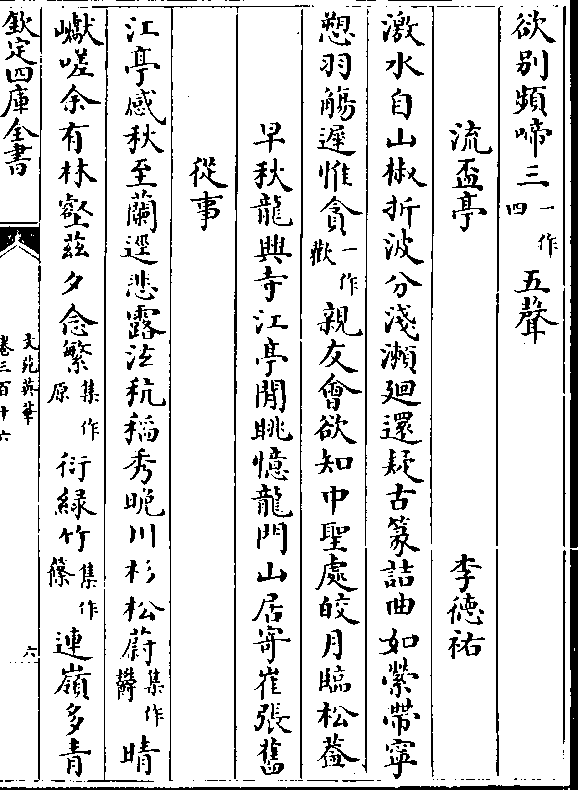 欲别頻啼三一作四五聲
流盃亭 李徳祐
激水自山椒折波分淺瀬廻還疑古篆詰曲如縈帶寧
愬羽觴遲惟貪一作歡親友會欲知中聖處皎月臨松葢
早秋龍興寺江亭閒眺憶龍門山居寄崔張舊
從事
江亭感秋至蘭逕悲露泫秔稻秀晚川杉松蔚集作欎晴
巘嗟余有林壑兹夕念繁集作原衍緑竹集作篠連嶺多青
欽定四庫全書
文苑英華
卷三百十六
六